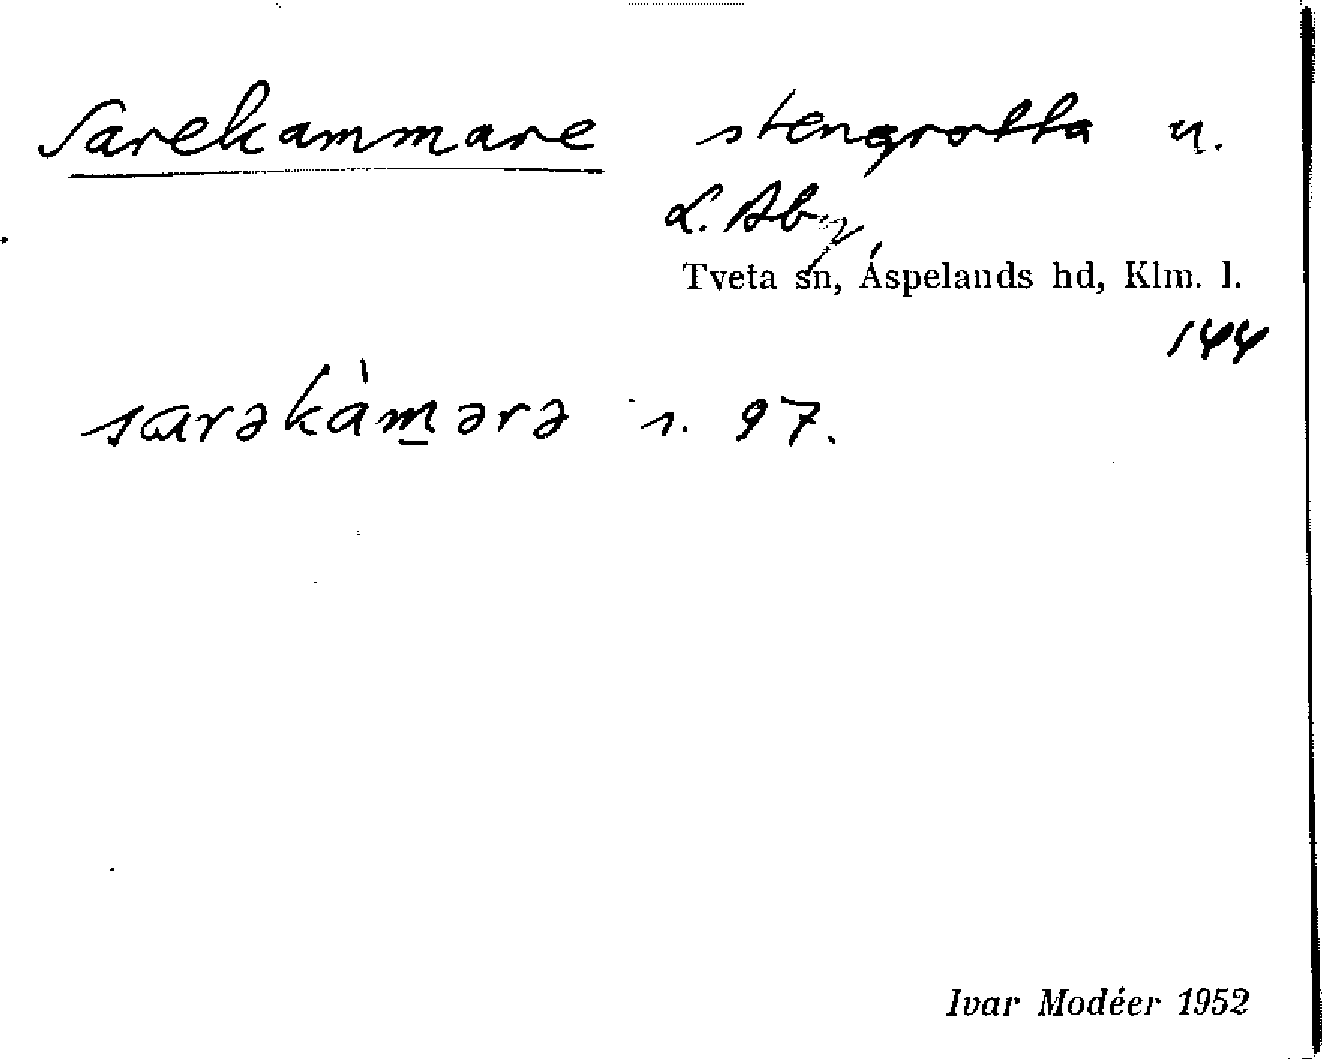 Sarekammare stengrotta u.
L. Aby
Tveta sn, Áspelands hd, Klm. l.
144
sarəkàm̲ərə s. 97.
Ivar Modéer 1952